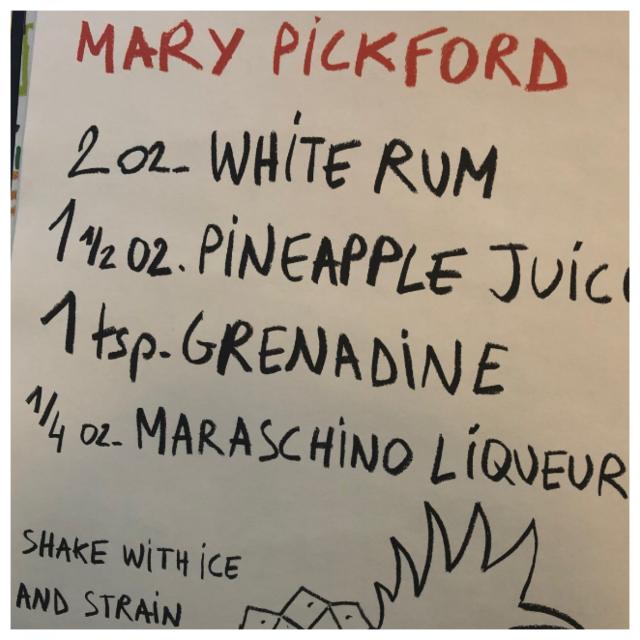 MARY PICKFORD
2 oz- WHITE RUM
1 1/2 oz. PINEAPPLE JUIC
1 tsp. GRENADINE
1/4 oz- MARASCHINO LIQUEUR
SHAKE WITH ICE
AND STRAIN